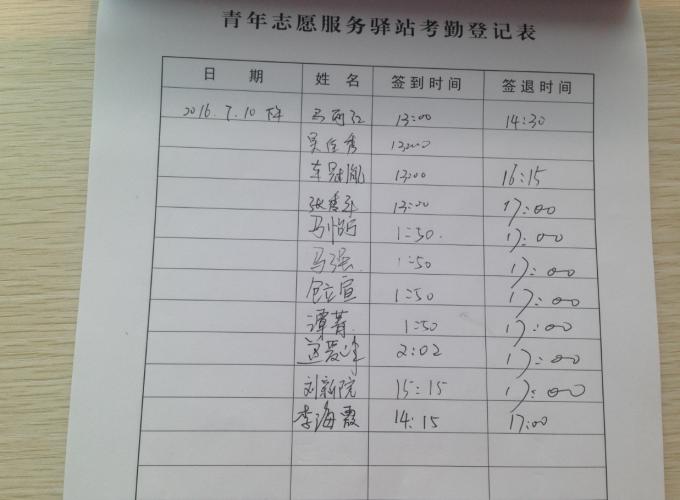 青年志愿服务驿站考勤登记表
日 期 姓 名 签到时间 签退时间
2016.7.10 下午 马丽红 13:00 14:30
吴佳秀 13:00
车冠胤 13:00 16:15
张秀平 13:00 17:00
1:50. 17:00
马强 1:50 17:00
包立宣 1:50 17:00
谭菁 1:50 17:00
2:02 17:00
刘新院 15:15 17:00
李海霞 14:15 17:00